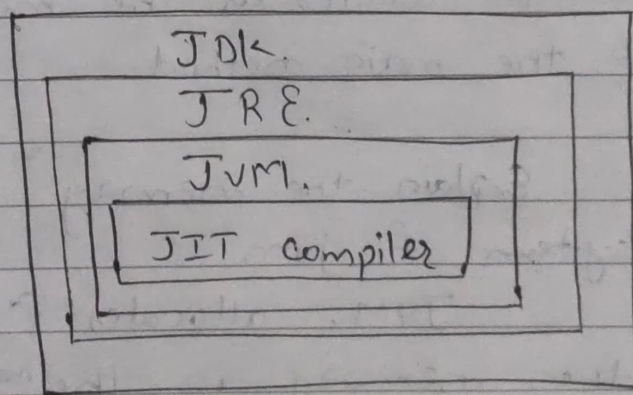 JDK.
JRE.
JVM.
JIT compiler